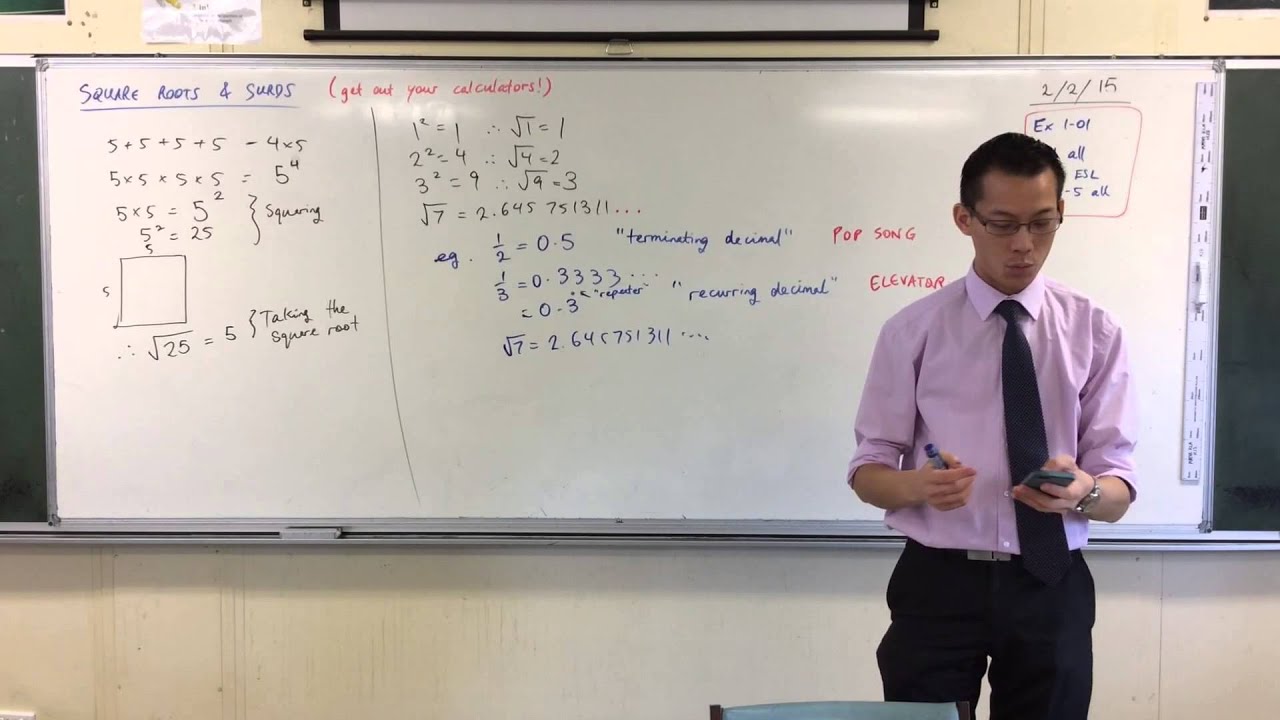 SQUARE ROOTS & SURDS (get out your calculators!)
5+5+5+5 = 4×5
5×5×5×5 = 5⁴
5×5 = 5²
5² = 25
} Squaring
5
5
∴ √25 = 5
} Taking the
square root
1² = 1 ∴ √1 = 1
2² = 4 ∴ √4 = 2
3² = 9 ∴ √9 = 3
√7 = 2.645 751311...
eg. 1/2 = 0.5 "terminating decimal" POP SONG
1/3 = 0.3333... "recurring decimal" ELEVATOR
= 0.3̇ ← "repeater"
√7 = 2.645751311...
2/2/15
Ex 1-01
all
ESL
-5 all